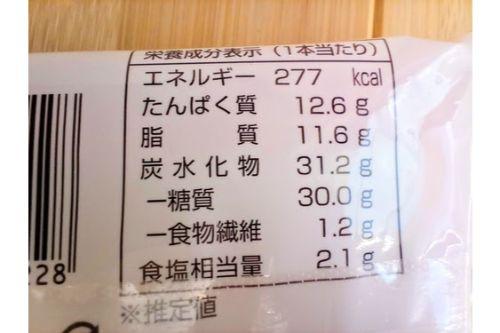 栄養成分表示(1本当たり)
エネルギー 277 kcal
たんぱく質 12.6 g
脂質 11.6 g
炭水化物 31.2 g
-糖質 30.0 g
-食物繊維 1.2 g
食塩相当量 2.1 g
228
※推定値